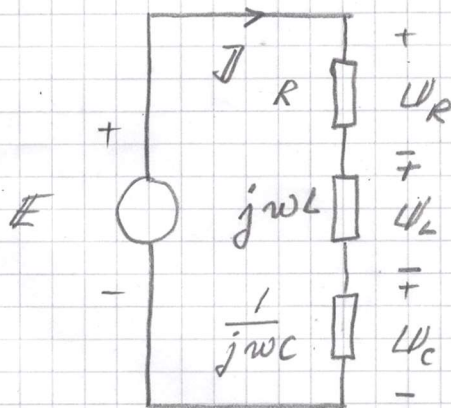 +
𝕁
R
𝕌_R
+
∓
𝔼
jωL
𝕌_L
-
∓
1/jωC
𝕌_C
-